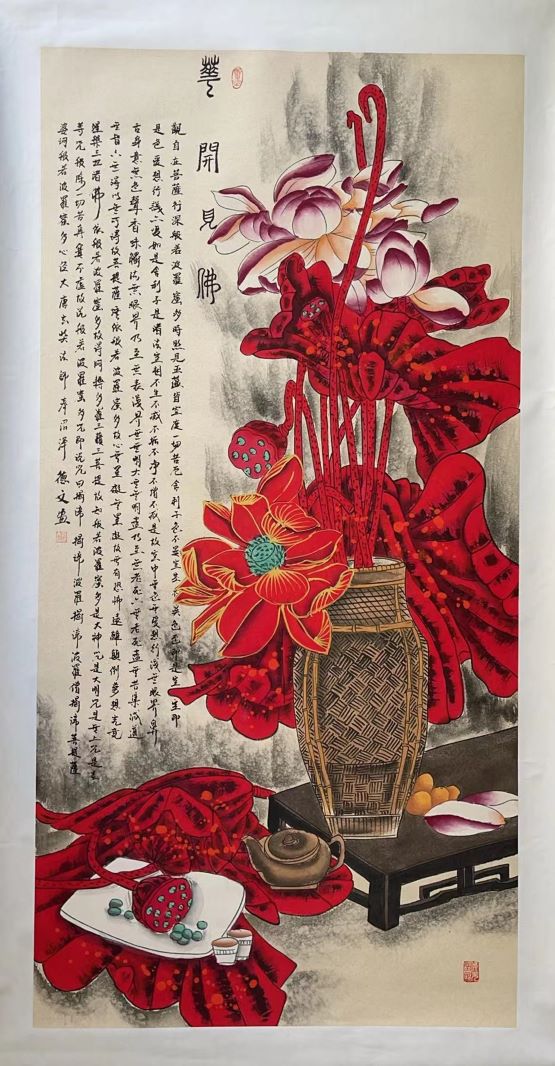 華開見佛
觀自在菩薩行深般若波羅蜜多時照見五蘊皆空度一切苦厄舍利子色不異空空不異色色即是空空即
是色受想行識亦復如是舍利子是諸法空相不生不滅不垢不淨不增不減是故空中無色無受想行識無眼耳鼻
舌身意無色聲香味觸法無眼界乃至無意識界無無明亦無無明盡乃至無老死亦無老死盡無苦集滅道
無智亦無得以無所得故菩提薩埵依般若波羅蜜多故心無罣礙無罣礙故無有恐怖遠離顛倒夢想究竟
涅槃三世諸佛依般若波羅蜜多故得阿耨多羅三藐三菩提故知般若波羅蜜多是大神咒是大明咒是無上咒是無
等等咒能除一切苦真實不虛故說般若波羅蜜多咒即說咒曰揭諦揭諦波羅揭諦波羅僧揭諦菩提薩
婆訶般若波羅蜜多心經大唐玄奘法師奉詔譯 德文畫